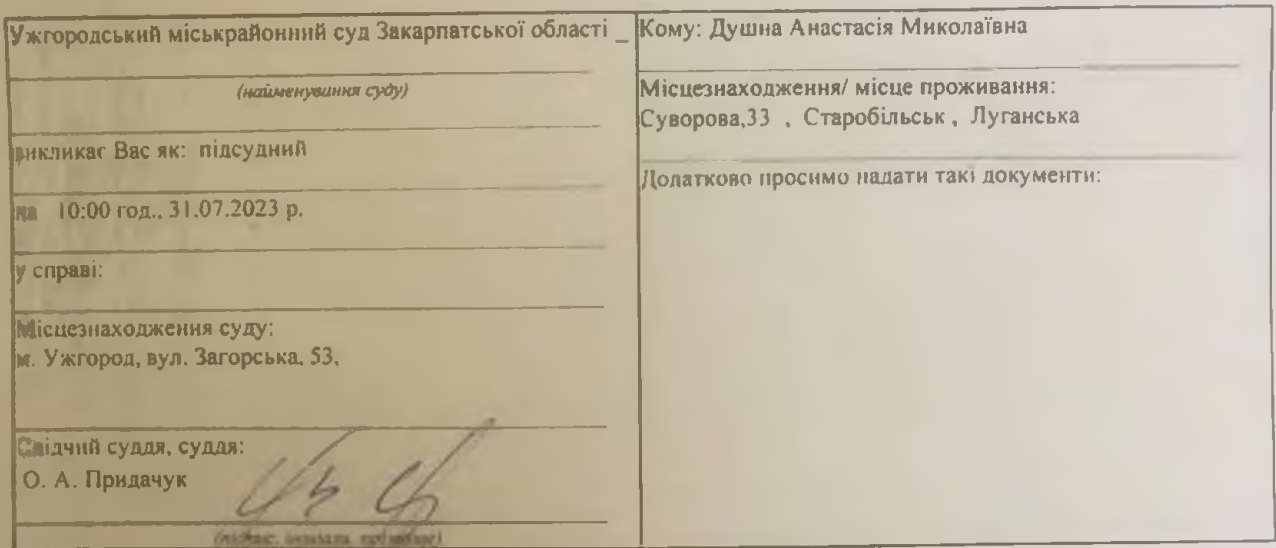 Ужгородський міськрайонний суд Закарпатської області _
(найменування суду)
викликає Вас як: підсудний
на 10:00 год., 31.07.2023 р.
у справі:
Місцезнаходження суду:
м. Ужгород, вул. Загорська, 53,
Слідчий суддя, суддя:
О. А. Придачук
(підпис, ініціали, прізвище)
Кому: Душна Анастасія Миколаївна
Місцезнаходження/ місце проживання:
Суворова,33 , Старобільськ , Луганська
Додатково просимо надати такі документи: